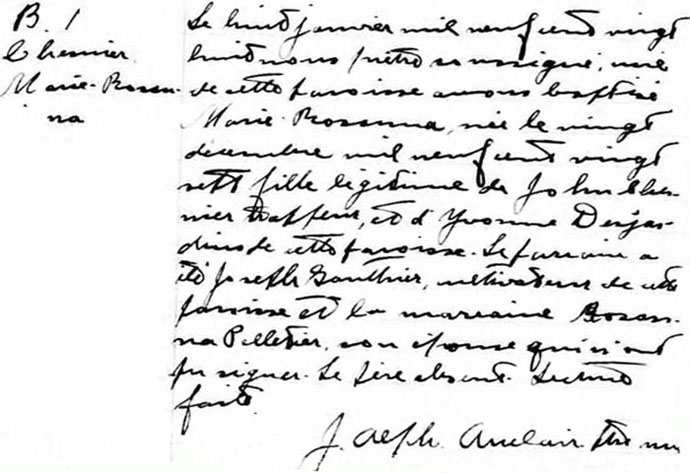 B. 1
Chenier
Marie-Rosan-
na
Le huit janvier mil neuf cent vingt
huit nous prêtre soussigné, curé
de cette paroisse avons baptisé
Marie-Rosanna, née le vingt
décembre mil neuf cent vingt
sept fille légitime de John Che-
nier trappeur, et d'Yvonne Desjar-
dins de cette paroisse. Le parrain a
été Joseph Gauthier, cultivateur de cette
paroisse et la marraine Rosan-
na Pelletier, son épouse qui n'ont
pu signer. Le père absent. Lecture
faite.
J. Alph. Auclair Ptre